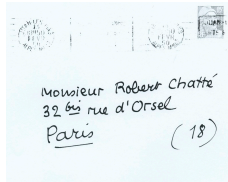 Monsieur Robert Chatté
32 bis rue d'Orsel
Paris (18)